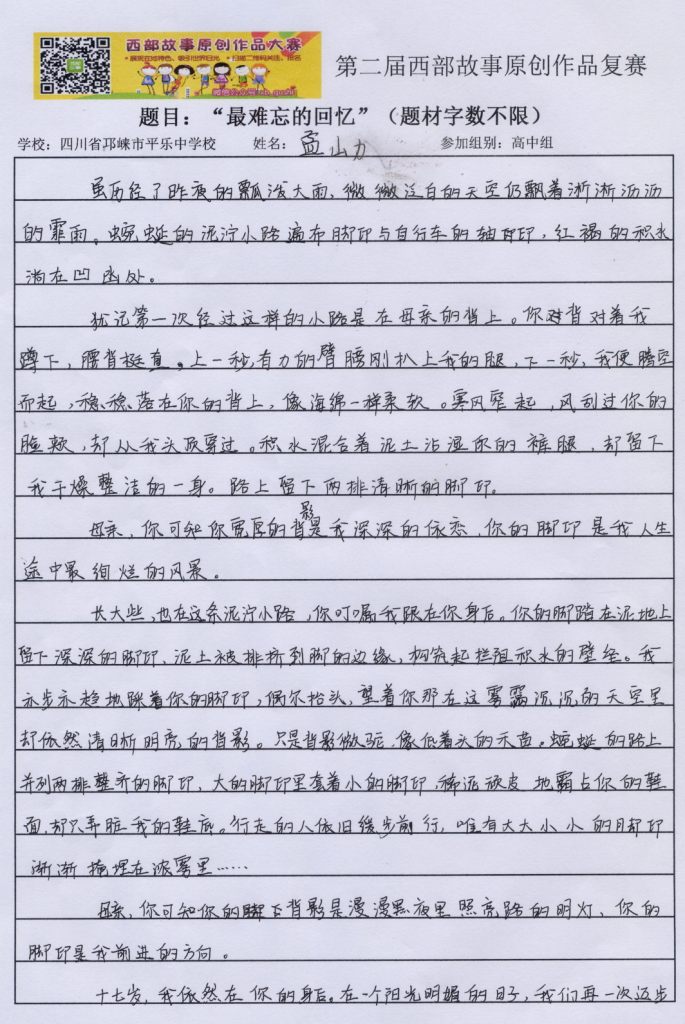 西部故事原创作品大赛
第二届西部故事原创作品复赛
题目：“最难忘的回忆”（题材字数不限）
学校：四川省邛崃市平乐中学校 姓名：孟山力 参加组别：高中组
虽历经了昨夜的瓢泼大雨，微微泛白的天空仍飘着淅淅沥沥
的霏雨。蜿蜒的泥泞小路遍布脚印与自行车的轴印，红褐的积水
淌在凹凼处。
犹记第一次经过这样的小路是在母亲的背上。你对背对着我
蹲下，腰背挺直。上一秒，有力的臂腰刚扒上我的腿，下一秒，我便腾空
而起，稳稳落在你的背上，像海绵一样柔软。寒风窄起，风刮过你的
脸颊，却从我头顶穿过。积水混合着泥土沾湿你的裤腿，却留下
我干燥整洁的一身。路上留下两排清晰的脚印。
母亲，你可知你宽厚的背影是我深深的依恋，你的脚印是我人生
途中最绚烂的风景。
长大些，也在这条泥泞小路，你叮嘱我跟在你身后。你的脚踏在泥地上
留下深深的脚印，泥土被排挤到脚的边缘，构筑起拦阻积水的壁垒。我
亦步亦趋地踩着你的脚印，偶尔抬头，望着你那在这雾霭沉沉的天空里
却依然清晰明亮的背影。只是背影微驼，像低着头的禾苗。蜿蜒的路上
并列两排整齐的脚印，大的脚印里套着小的脚印，稀泥顽皮地霸占你的鞋
面，却只弄脏我的鞋底。行走的人依旧缓步前行，唯有大大小小的脚印
渐渐掩埋在浓雾里……
母亲，你可知你的背影是漫漫黑夜里照亮路的明灯，你的
脚印是我前进的方向。
十七岁，我依然在你的身后。在一个阳光明媚的日子，我们再一次迈步